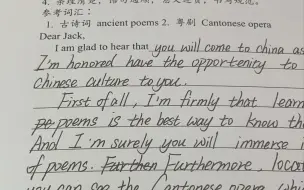 参考词汇：
1. 古诗词 ancient poems 2. 粤剧 Cantonese opera
Dear Jack,
I am glad to hear that you will come to china as
I'm honored have the opportenity to
chinese culture to you.
First of all, I'm firmly that learn
poems is the best way to know the
And I'm surely you will immerse i
of poems. Further Furthermore, loca
you can see the Cantonese opera wh